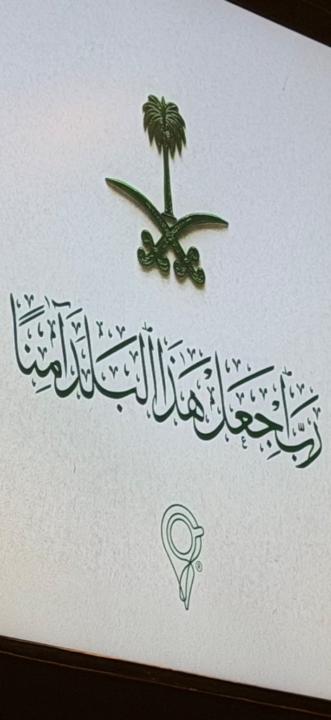 رَبِّ اجْعَلْ هَذَا الْبَلَدَ آمِنًا
®